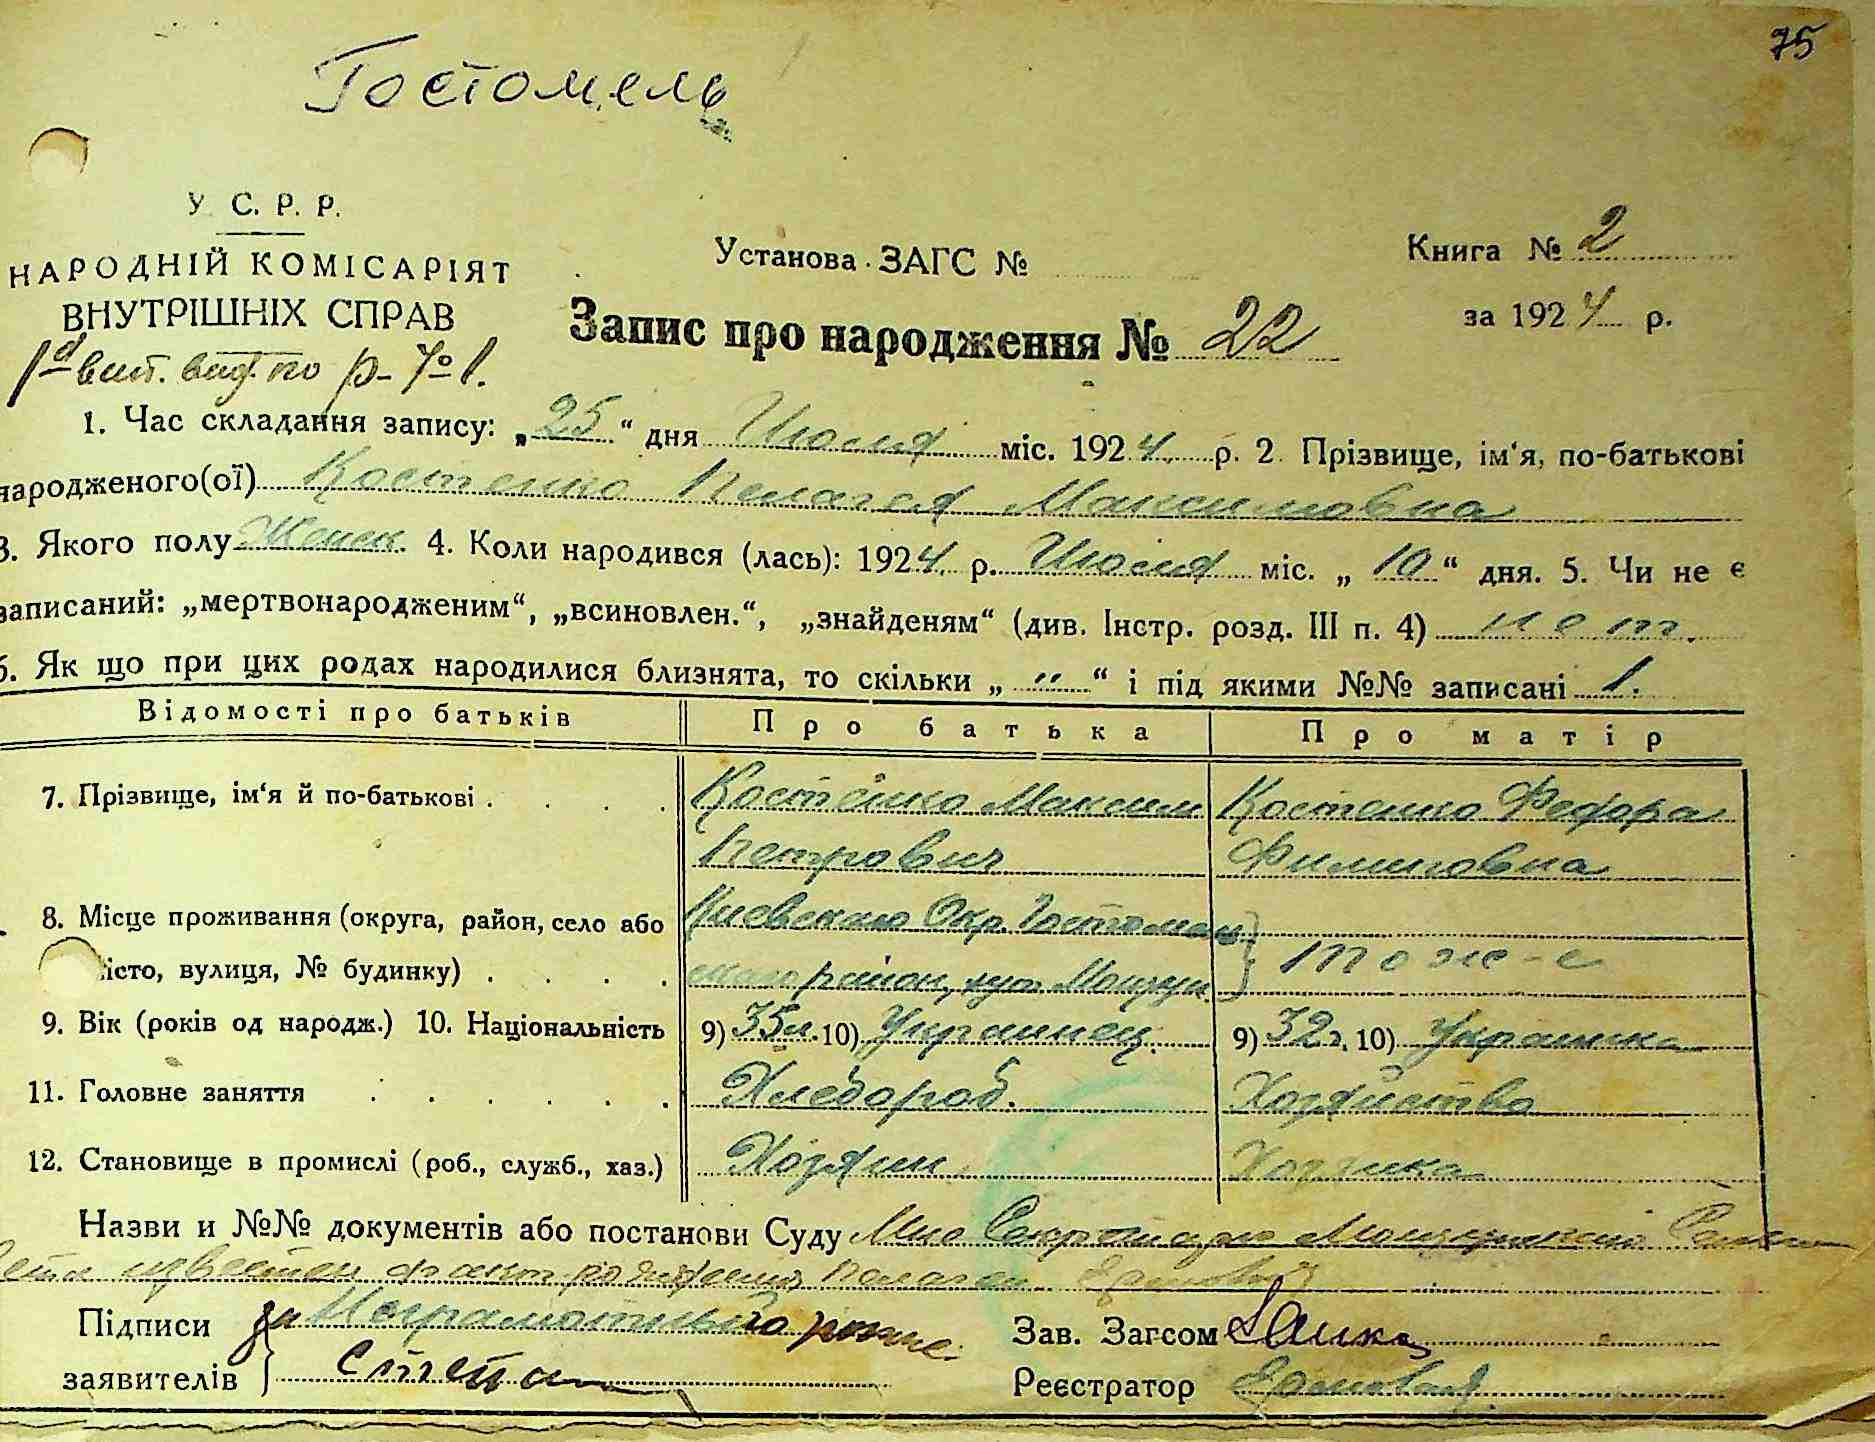 75
Гостомель
У. С. Р. Р.
НАРОДНІЙ КОМІСАРІЯТ
ВНУТРІШНІХ СПРАВ
Установа ЗАГС №
Книга № 2
за 1924 р.
Запис про народження № 22
1. Час складання запису: „25“ дня Июля міс. 1924 р. 2. Прізвище, ім‘я, по-батькові
народженого(ої) Костенко Пелагея Максимовна
3. Якого полу Женск. 4. Коли народився (лась): 1924 р. Июля міс. „10“ дня. 5. Чи не є
записаний: „мертвонародженим“, „всиновлен.“, „знайденям“ (див. Інстр. розд. III п. 4) нет.
6. Як що при цих родах народилися близнята, то скільки „ " “ і під якими №№ записані 1.
Відомості про батьків Про батька Про матір
7. Прізвище, ім‘я й по-батькові . . . . Костенко Максим Костенко Федора
Петрович Филиповна
8. Місце проживання (округа, район, село або Киевского Окр. Гостомель
місто, вулиця, № будинку) . . . . ского район, хут. Мощун тоже
9. Вік (років од народж.) 10. Національність 9) 35 л. 10) Украинец. 9) 32 г. 10) Украинка
11. Головне заняття . . . . . . Хлебороб. Хозяйство
12. Становище в промислі (роб., служб., хаз.) Хозяин Хозяйка
Назви и №№ документів або постанови Суду Мне Секретарю Мощунского
известен факт рождения Пелагеи
Підписи за Неграмотного
заявителів
Зав. Загсом
Реєстратор